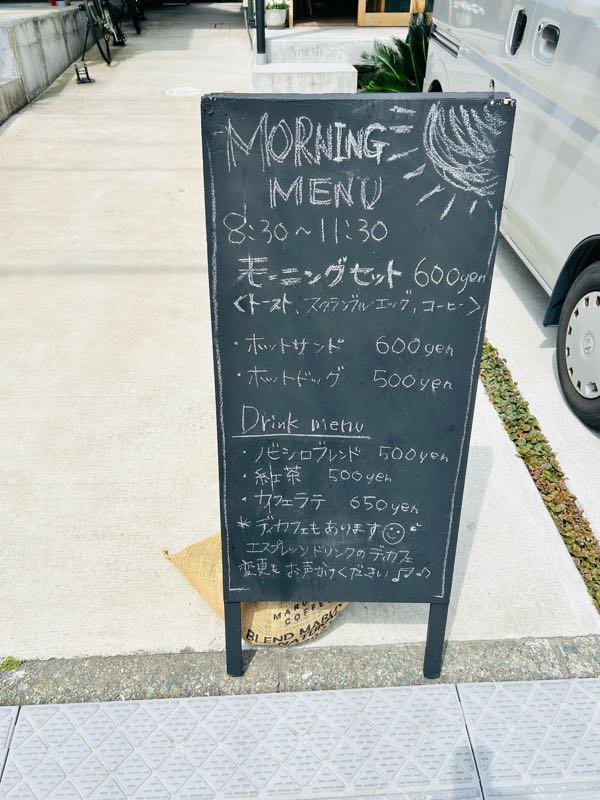 MORNING
MENU
8:30~11:30
モーニングセット 600yen
<トースト、スクランブルエッグ、コーヒー>
・ホットサンド 600yen
・ホットドッグ 500yen
Drink menu
・ノビシロブレンド 500yen
・紅茶 500yen
・カフェラテ 650yen
*ディカフェもあります
エスプレッソドリンクのディカフェ
変更もお声かけください♪♪
COFFEE
BLEND
NATURAL